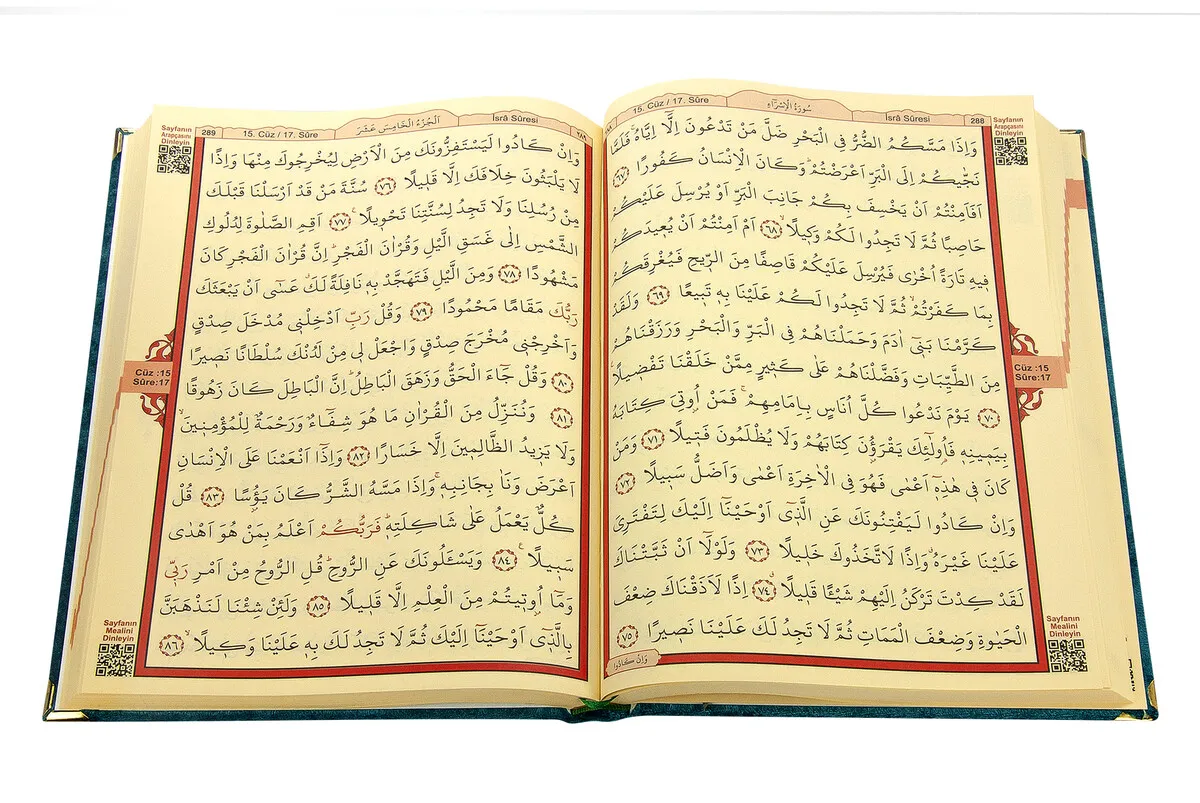 15. Cüz / 17. Sûre
سُورَةُ الْاِسْرَٓاءِ
İsrâ Sûresi
288
Sayfanın
Arapçasını
Dinleyin
وَاِذَا مَسَّكُمُ الضُّرُّ فِي الْبَحْرِ ضَلَّ مَنْ تَدْعُونَ اِلَّٓا اِيَّاهُۚ فَلَمَّا
نَجّٰيكُمْ اِلَى الْبَرِّ اَعْرَضْتُمْۜ وَكَانَ الْاِنْسَانُ كَفُورًا ﴿٦٧﴾
اَفَاَمِنْتُمْ اَنْ يَخْسِفَ بِكُمْ جَانِبَ الْبَرِّ اَوْ يُرْسِلَ عَلَيْكُمْ
حَاصِبًا ثُمَّ لَا تَجِدُوا لَكُمْ وَك۪يلًاۙ ﴿٦٨﴾ اَمْ اَمِنْتُمْ اَنْ يُع۪يدَكُمْ
ف۪يهِ تَارَةً اُخْرٰى فَيُرْسِلَ عَلَيْكُمْ قَاصِفًا مِنَ الرّ۪يحِ فَيُغْرِقَكُمْ
بِمَا كَفَرْتُمْۙ ثُمَّ لَا تَجِدُوا لَكُمْ عَلَيْنَا بِه۪ تَب۪يعًا ﴿٦٩﴾ وَلَقَدْ
كَرَّمْنَا بَن۪ٓي اٰدَمَ وَحَمَلْنَاهُمْ فِي الْبَرِّ وَالْبَحْرِ وَرَزَقْنَاهُمْ
مِنَ الطَّيِّبَاتِ وَفَضَّلْنَاهُمْ عَلٰى كَث۪يرٍ مِمَّنْ خَلَقْنَا تَفْض۪يلًا۟
﴿٧٠﴾ يَوْمَ نَدْعُوا كُلَّ اُنَاسٍ بِاِمَامِهِمْۚ فَمَنْ اُو۫تِيَ كِتَابَهُ
بِيَم۪ينِه۪ فَاُو۬لٰٓئِكَ يَقْرَؤُ۫نَ كِتَابَهُمْ وَلَا يُظْلَمُونَ فَت۪يلًا ﴿٧١﴾ وَمَنْ
كَانَ ف۪ي هٰذِه۪ٓ اَعْمٰى فَهُوَ فِي الْاٰخِرَةِ اَعْمٰى وَاَضَلُّ سَب۪يلًا ﴿٧٢﴾
وَاِنْ كَادُوا لَيَفْتِنُونَكَ عَنِ الَّذ۪ٓي اَوْحَيْنَٓا اِلَيْكَ لِتَفْتَرِيَ
عَلَيْنَا غَيْرَهُۗ وَاِذًا لَاتَّخَذُوكَ خَل۪يلًا ﴿٧٣﴾ وَلَوْلَٓا اَنْ ثَبَّتْنَاكَ
لَقَدْ كِدْتَ تَرْكَنُ اِلَيْهِمْ شَيْـًٔا قَل۪يلًاۗ ﴿٧٤﴾ اِذًا لَاَذَقْنَاكَ ضِعْفَ
الْحَيٰوةِ وَضِعْفَ الْمَمَاتِ ثُمَّ لَا تَجِدُ لَكَ عَلَيْنَا نَص۪يرًا ﴿٧٥﴾
وَاِنْ كَادُوا
Cüz :15
Sûre:17
Sayfanın
Mealini
Dinleyin
289
15. Cüz / 17. Sûre
اَلْجُزْءُ الْخَامِسَ عَشَرَ
İsrâ Sûresi
٢٨٩
Sayfanın
Arapçasını
Dinleyin
وَاِنْ كَادُوا لَيَسْتَفِزُّونَكَ مِنَ الْاَرْضِ لِيُخْرِجُوكَ مِنْهَا وَاِذًا
لَا يَلْبَثُونَ خِلَافَكَ اِلَّا قَل۪يلًا ﴿٧٦﴾ سُنَّةَ مَنْ قَدْ اَرْسَلْنَا قَبْلَكَ
مِنْ رُسُلِنَا وَلَا تَجِدُ لِسُنَّتِنَا تَحْو۪يلًا۟ ﴿٧٧﴾ اَقِمِ الصَّلٰوةَ لِدُلُوكِ
الشَّمْسِ اِلٰى غَسَقِ الَّيْلِ وَقُرْاٰنَ الْفَجْرِۜ اِنَّ قُرْاٰنَ الْفَجْرِ كَانَ
مَشْهُودًا ﴿٧٨﴾ وَمِنَ الَّيْلِ فَتَهَجَّدْ بِه۪ نَافِلَةً لَكَۗ عَسٰٓى اَنْ يَبْعَثَكَ
رَبُّكَ مَقَامًا مَحْمُودًا ﴿٧٩﴾ وَقُلْ رَبِّ اَدْخِلْن۪ي مُدْخَلَ صِدْقٍ
وَاَخْرِجْن۪ي مُخْرَجَ صِدْقٍ وَاجْعَلْ ل۪ي مِنْ لَدُنْكَ سُلْطَانًا نَص۪يرًا
﴿٨٠﴾ وَقُلْ جَٓاءَ الْحَقُّ وَزَهَقَ الْبَاطِلُۜ اِنَّ الْبَاطِلَ كَانَ زَهُوقًا
﴿٨١﴾ وَنُنَزِّلُ مِنَ الْقُرْاٰنِ مَا هُوَ شِفَٓاءٌ وَرَحْمَةٌ لِلْمُؤْمِن۪ينَۙ
وَلَا يَز۪يدُ الظَّالِم۪ينَ اِلَّا خَسَارًا ﴿٨٢﴾ وَاِذَٓا اَنْعَمْنَا عَلَى الْاِنْسَانِ
اَعْرَضَ وَنَاٰ بِجَانِبِه۪ۚ وَاِذَا مَسَّهُ الشَّرُّ كَانَ يَؤُ۫سًا ﴿٨٣﴾ قُلْ
كُلٌّ يَعْمَلُ عَلٰى شَاكِلَتِه۪ۜ فَرَبُّكُمْ اَعْلَمُ بِمَنْ هُوَ اَهْدٰى
سَب۪يلًا۟ ﴿٨٤﴾ وَيَسْـَٔلُونَكَ عَنِ الرُّوحِۜ قُلِ الرُّوحُ مِنْ اَمْرِ رَبّ۪ي
وَمَٓا اُو۫ت۪يتُمْ مِنَ الْعِلْمِ اِلَّا قَل۪يلًا ﴿٨٥﴾ وَلَئِنْ شِئْنَا لَنَذْهَبَنَّ
بِالَّذ۪ٓي اَوْحَيْنَٓا اِلَيْكَ ثُمَّ لَا تَجِدُ لَكَ بِه۪ عَلَيْنَا وَك۪يلًاۙ ﴿٨٦﴾
Cüz :15
Sûre:17
Sayfanın
Mealini
Dinleyin